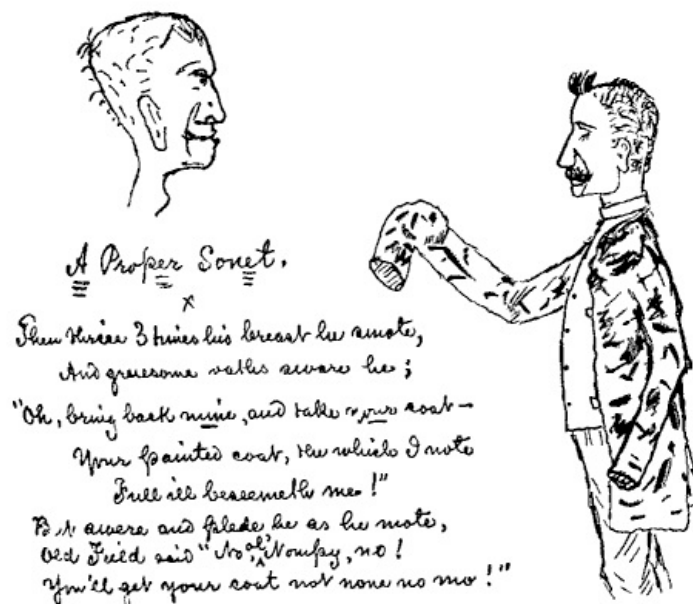 A Proper Sonet.
x
Then thrice 3 times his breast he smote,
And gruesome oaths sware he;
"Oh, bring back mine, and take your coat—
Your painted coat, the which I note
Full ill beseemeth me!"
But swere and plede he as he mote,
Old Field said "No, ol' Nompy, no!
You'll get your coat not none no mo!"